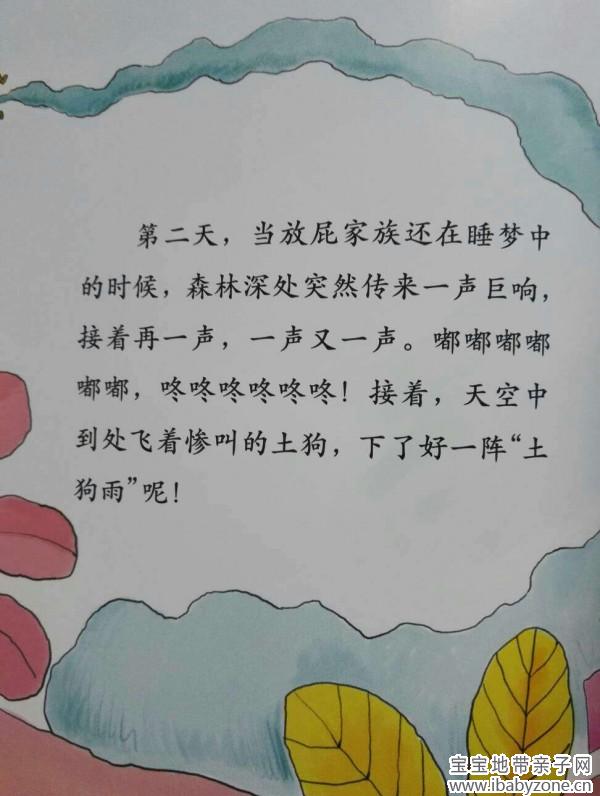 第二天，当放屁家族还在睡梦中
的时候，森林深处突然传来一声巨响，
接着再一声，一声又一声。嘟嘟嘟嘟
嘟嘟，咚咚咚咚咚咚！接着，天空中
到处飞着惨叫的土狗，下了好一阵“土
狗雨”呢！
宝宝地带亲子网
www.ibabyzone.cn